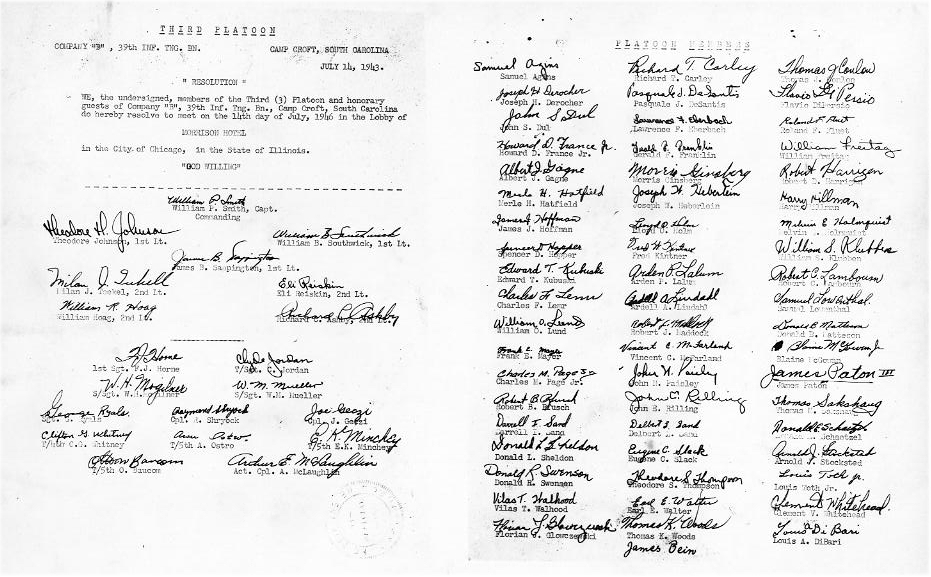 THIRD PLATOON
COMPANY "B", 39th INF. TNG. BN. CAMP CROFT, SOUTH CAROLINA
JULY 14, 1943.
" RESOLUTION "
WE, the undersigned, members of the Third (3) Platoon and honorary
guests of Company "B", 39th Inf. Tng. Bn., Camp Croft, South Carolina
do hereby resolve to meet on the 14th day of July, 1946 in the Lobby of
MORRISON HOTEL
in the City of Chicago, in the State of Illinois.
"GOD WILLING"
William P. Smith
William P. Smith, Capt.
Commanding
Theodore H. Johnson William B. Southwick
Theodore Johnson, 1st Lt. William B. Southwick, 1st Lt.
James B. Sappington
James B. Sappington, 1st Lt.
Milan J. Eli Reiskin
Milan J. 2nd Lt. Eli Reiskin, 2nd Lt.
William R. Hoag Richard Ashby
William Hoag, 2nd Lt. Richard C. Ashby, 2nd Lt.
Horne Clyde Jordan
1st Sgt. F.J. Horne T/Sgt. C. Jordan
W. H. Mogilner W. M. Mueller
S/Sgt. W.H. Mogilner S/Sgt. W.M. Mueller
George Ryals Raymond Shryock Joe Geozi
Sgt. G. Ryals Cpl. R. Shryock Cpl. J. Geozi
Clifton G. Whitney E. K. Minchey
T/5th C.G. Whitney T/5th A. Ostro T/5th E.K. Minchey
Baucom Archer E. McLaughlin
T/5th O. Baucom Act. Cpl. A. McLaughlin
PLATOON MEMBERS
Samuel Agins Richard T. Carley Thomas J Conlon
Samuel Agins Richard T. Carley Thomas J. Conlon
Joseph H Derocher Pasquale J. DeSantis Flavio Di Persio
Joseph H. Derocher Pasquale J. DeSantis Flavio DiPersio
John S Dul Lawrence F. Eberbach Roland F. Fluet
John S. Dul Lawrence F. Eberbach Roland F. Fluet
Howard D. France Jr. Gerald F. Franklin William Freitag
Howard D. France Jr. Gerald F. Franklin William Freitag
Albert J. Gagne Morris Ginsberg Robert Harrigan
Albert J. Gagne Morris Ginsberg Robert D. Harrigan
Merle H. Hatfield Joseph W. Heberlein Harry Hillman
Merle H. Hatfield Joseph W. Heberlein Harry Hillman
James J Hoffman Lloyd O. Holm Melvin E Holmquist
James J. Hoffman Lloyd O. Holm Melvin E. Holmquist
Spencer D Hopper Fred W. Kintner William S. Klubben
Spencer D. Hopper Fred Kintner William S. Klubben
Edward T. Kubuski Arden P. Lalum Robert C. Lambourn
Edward T. Kubuski Arden P. Lalum Robert C. Lambourn
Charles F Leer Ardell A. Lindahl Samuel Lowenthal
Charles F. Leer Ardell A. Lindahl Samuel Lowenthal
William O. Lund Robert J. Maddock Donald E Matteson
William O. Lund Robert J. Maddock Donald E. Matteson
Frank E. Mayer Vincent C. McFarland Blaine McGowan Jr
Frank E. Mayer Vincent C. McFarland Blaine McGowan
Charles M. Page Jr John H. Paisley James Paton III
Charles M. Page Jr. John H. Paisley James Paton
Robert B Rusch John E. Rilling Thomas
Robert B. Rusch John E. Rilling Thomas
Darrell I Sand Delbert L. Sand Donald E Schaetzel
Darrell I. Sand Delbert L. Sand Schaetzel
Donald L. Sheldon Eugene C. Slack Arnold J. Stocksted
Donald L. Sheldon Eugene C. Slack Arnold J. Stocksted
Donald R. Swenson Theodore S. Thompson Louis Toth Jr.
Donald R. Swenson Theodore S. Thompson Louis Toth Jr.
Vilas T. Walhood Earl E. Walter Clement V Whitehead
Vilas T. Walhood Earl E. Walter Clement V. Whitehead
Florian J Glowczewski Thomas K. Woods Louis A Di Bari
Florian J. Glowczewski Thomas K. Woods Louis A. DiBari
James Bein